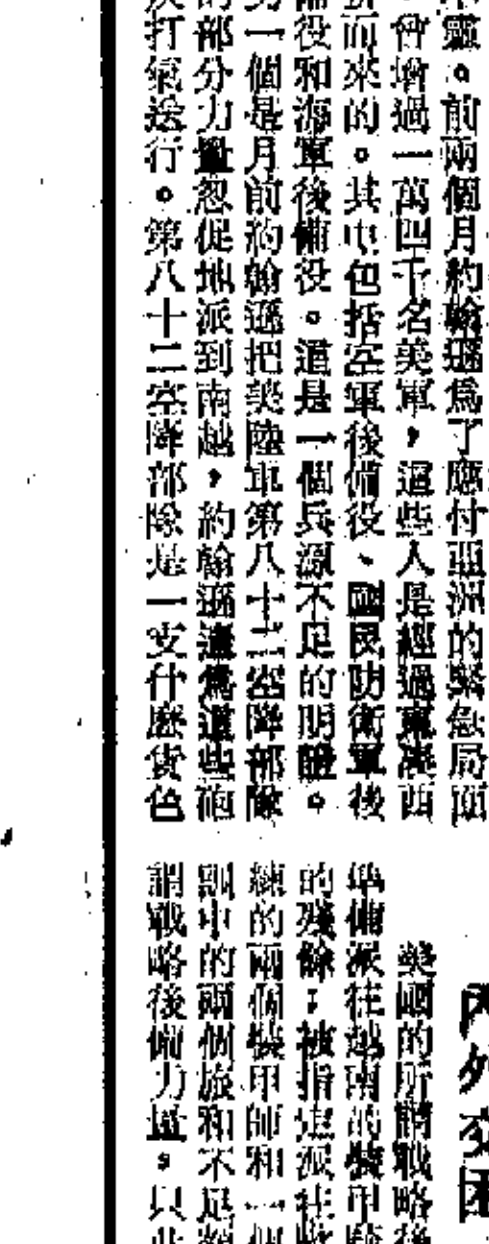 靈。前兩個月約翰遜爲了應付亞洲的緊急局面
會增過一萬四千名美軍，這些人是經過東湊西
而來的。其中包括空軍後備役、國民防衛軍後
備役和海軍後備役。這是一個兵源不足的明證。
另一個是月前約翰遜把美陸軍第八十二空降部隊
的部分力量怱促地派到南越，約翰遜還爲這些砲
打氣送行。第八十二空降部隊是一支什麽貨色
內外交困
美國的所謂戰略後
準備派往越南的裝甲騎
的殘餘；被指定派往
練的兩個裝甲師和一個
訓中的兩個旅和不足額
謂戰略後備力量。只此